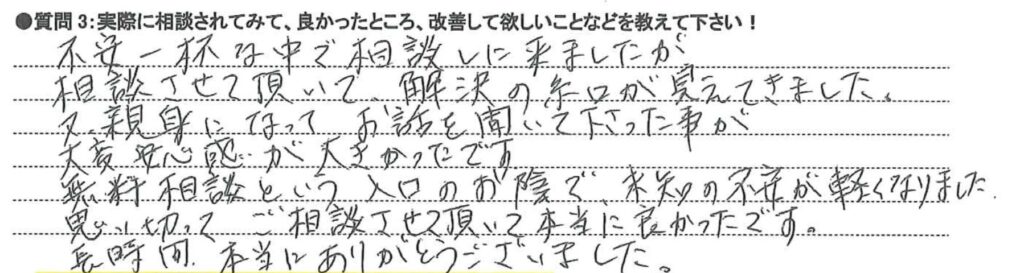 ●質問 3：実際に相談されてみて、良かったところ、改善して欲しいことなどを教えて下さい！
不安一杯な中で相談しに来ましたが
相談させて頂いて、解決の糸口が見えてきました。
又、親身になって お話を聞いて下さった事が
大変安心感が大きかったです
無料相談という入口のお陰で、未知の不安が軽くなりました.
思い切って ご相談させて頂いて本当に良かったです。
長時間、本当にありがとうございました。